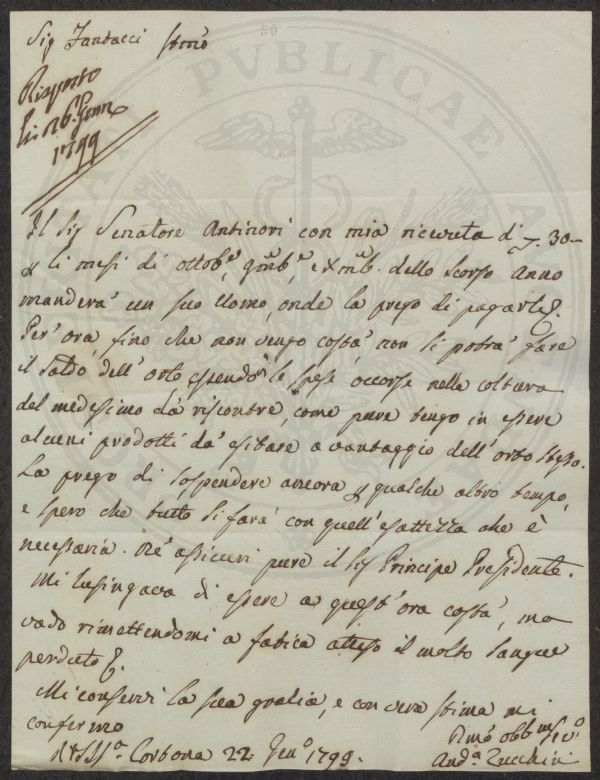 Sig Fantacci Stimō
Risposto
li 26. Genn
1799
Il Sig Senatore Antinori con mia ricevuta di 7. 30—
li mesi di ottobe, 9mbe, e Xmb. dello Scorso Anno
manderà un suo Uomo, onde la prego di pagarli.
Per' ora, fino che non vengo costà, non si potrà fare
il Saldo dell' orto essendovi le spese occorse nella coltura
del medesimo da riscontre, come pure tengo in essere
alcuni prodotti da' esitare a vantaggio dell' orto stesso.
La prego di sospendere ancora qualche altro tempo,
e spero che tutto si farà con quell' esattezza che è
necessaria. Ne' assicuri pure il Sig Principe Presidente.
Mi lusingava di essere a quest' ora costà, ma
vado rimettendomi a fatica atteso il molto sangue
perduto.
Mi conservi la sua grazia, e con vera stima mi
confermo
Cortona 22. Geno 1799.
Anda Zucchini
PVBLICAE